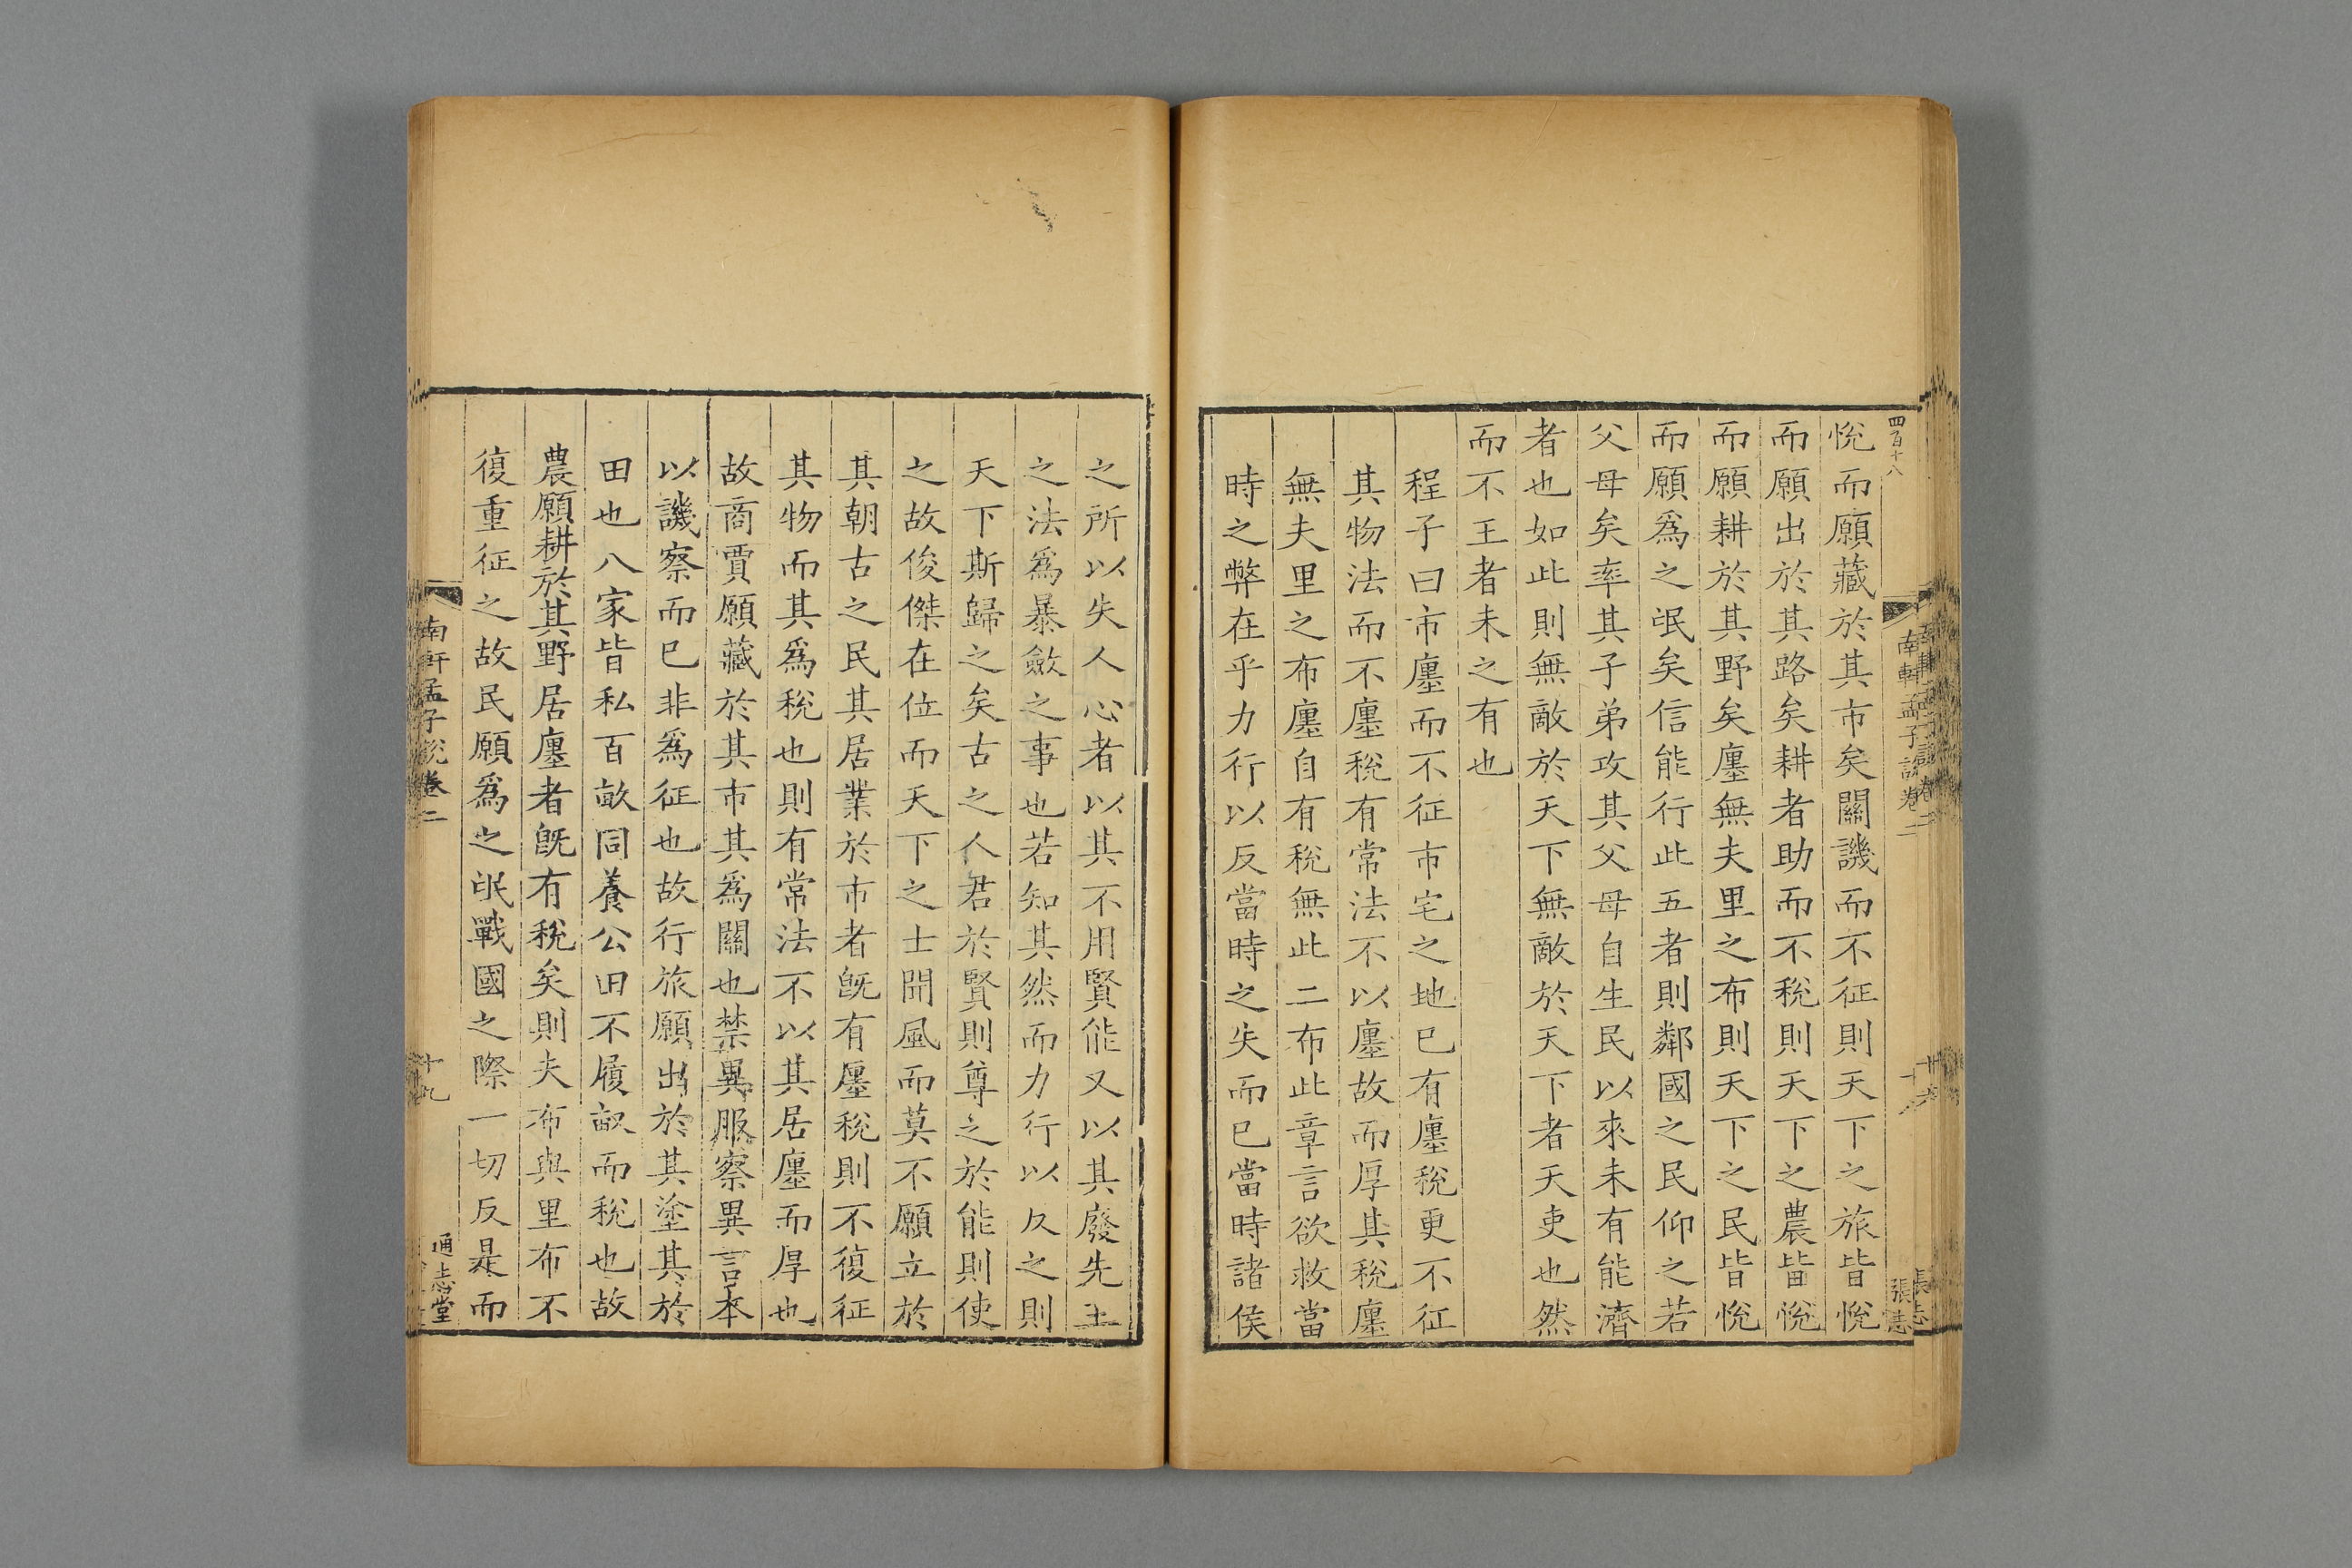 四百十八
悅而願藏於其市矣關譏而不征則天下之旅皆悅
而願出於其路矣耕者助而不稅則天下之農皆悅
而願耕於其野矣廛無夫里之布則天下之民皆悅
而願爲之氓矣信能行此五者則鄰國之民仰之若
父母矣率其子弟攻其父母自生民以來未有能濟
者也如此則無敵於天下無敵於天下者天吏也然
而不王者未之有也
程子曰市廛而不征市宅之地已有廛稅更不征
其物法而不廛稅有常法不以廛故而厚其稅廛
無夫里之布廛自有稅無此二布此章言欲救當
時之弊在乎力行以反當時之失而已當時諸侯
南軒孟子說卷二
之所以失人心者以其不用賢能又以其廢先王
之法爲暴斂之事也若知其然而力行以反之則
天下斯歸之矣古之人君於賢則尊之於能則使
之故俊傑在位而天下之士聞風而莫不願立於
其朝古之民其居業於市者旣有廛稅則不復征
其物而其爲稅也則有常法不以其居廛而厚也
故商賈願藏於其市其爲關也禁異服察異言本
以譏察而已非爲征也故行旅願出於其塗其於
田也八家皆私百畝同養公田不履畝而稅也故
農願耕於其野居廛者旣有稅矣則夫布與里布不
復重征之故民願爲之氓戰國之際一切反是而
南軒孟子說卷二
十九
通志堂